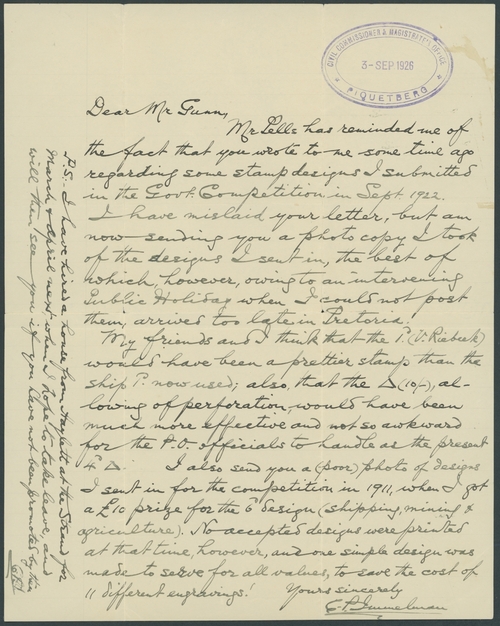 CIVIL COMMISSIONER & MAGISTRATE'S OFFICE
3-SEP.1926
PIQUETBERG
Dear Mr Gunn,
Mr Pells has reminded me of
the fact that you wrote to me some time ago
regarding some stamp designs I submitted
in the Govt. Competition in Sept. 1922.
I have mislaid your letter, but am
now sending you a photo copy I took
of the designs I sent in, the best of
which, however, owing to an intervening
Public Holiday when I could not post
them, arrived too late in Pretoria.
My friends and I think that the 1. (V. Riebeek)
would have been a prettier stamp than the
ship 1. now used; also, that the △ (10/-), al-
lowing of perforation, would have been
much more effective and not so awkward
for the P.O. officials to handle as the present
4d △. I also send you a (poor) photo of designs
I sent in for the competition in 1911, when I got
a £10 prize for the 6d design (shipping, mining &
agriculture). No accepted designs were printed
at that time, however, and one simple design was
made to serve for all values, to save the cost of
11 different engravings!
Yours sincerely
P.S:- I have hired a house from at the Strand for
March & April next when I hope to take leave, and
will then see you if you have not been promoted by then